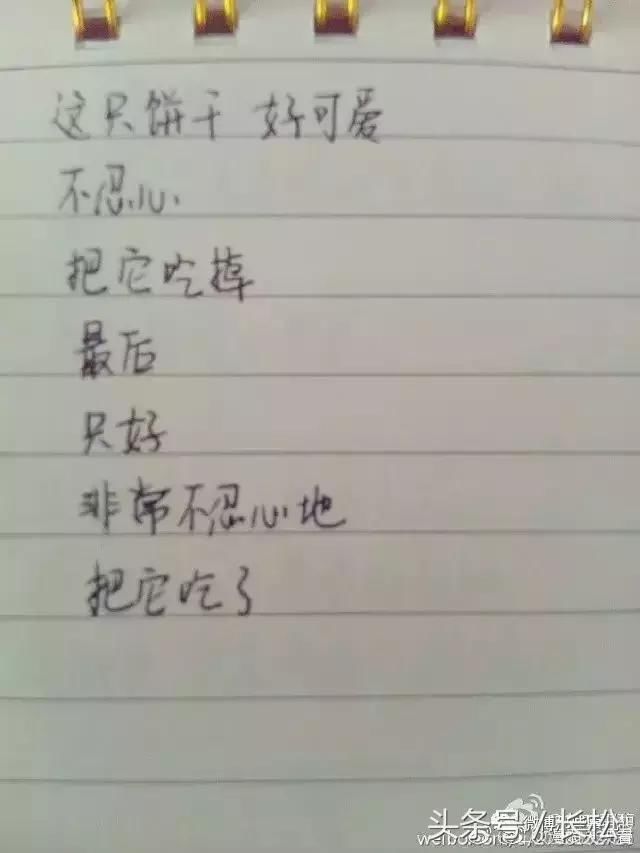 这只饼干 好可爱
不忍心
把它吃掉
最后
只好
非常不忍心地
把它吃了
头条号/长松